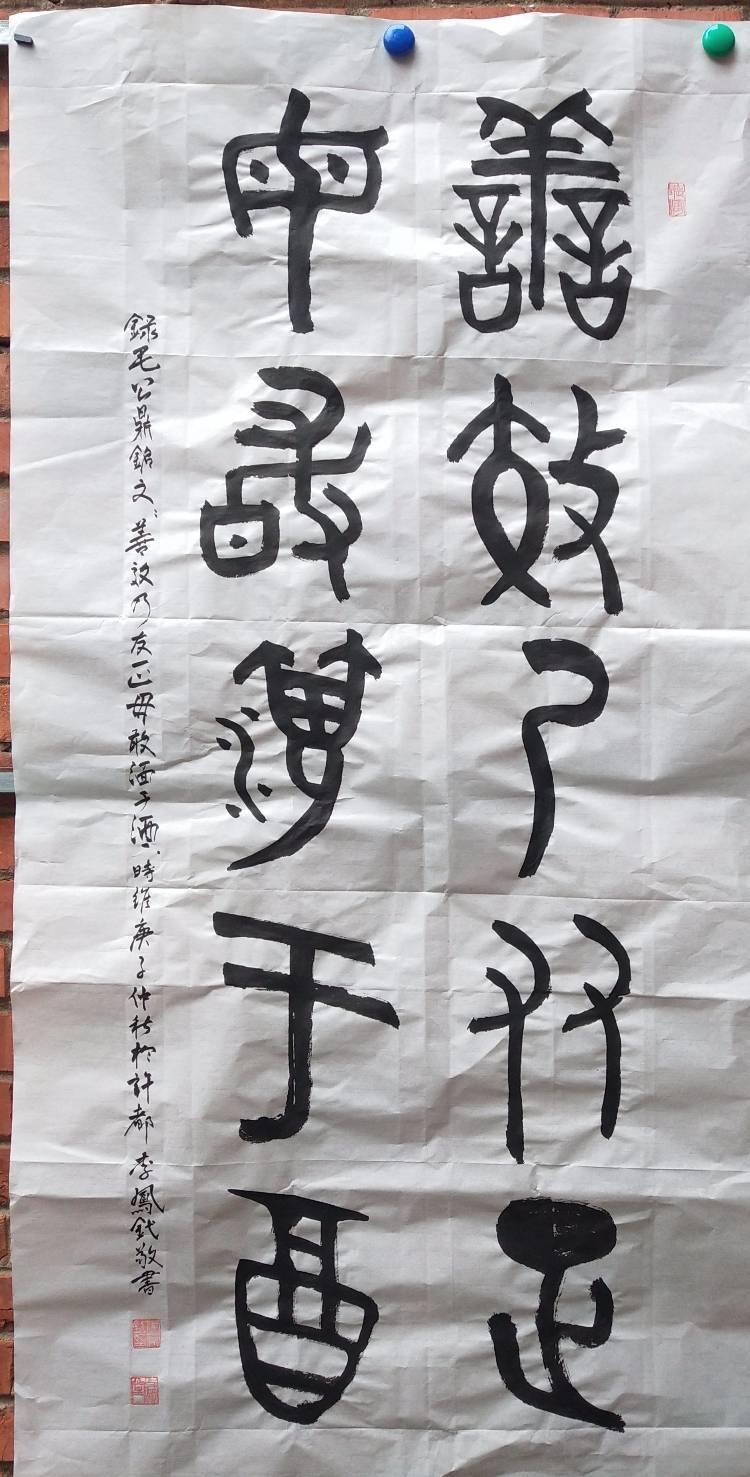 譱效乃友正
毋敢湎于酉
錄毛公鼎銘文：善效乃友正毋敢湎于酒、時維庚子仲秋於許都 李鳳敬書